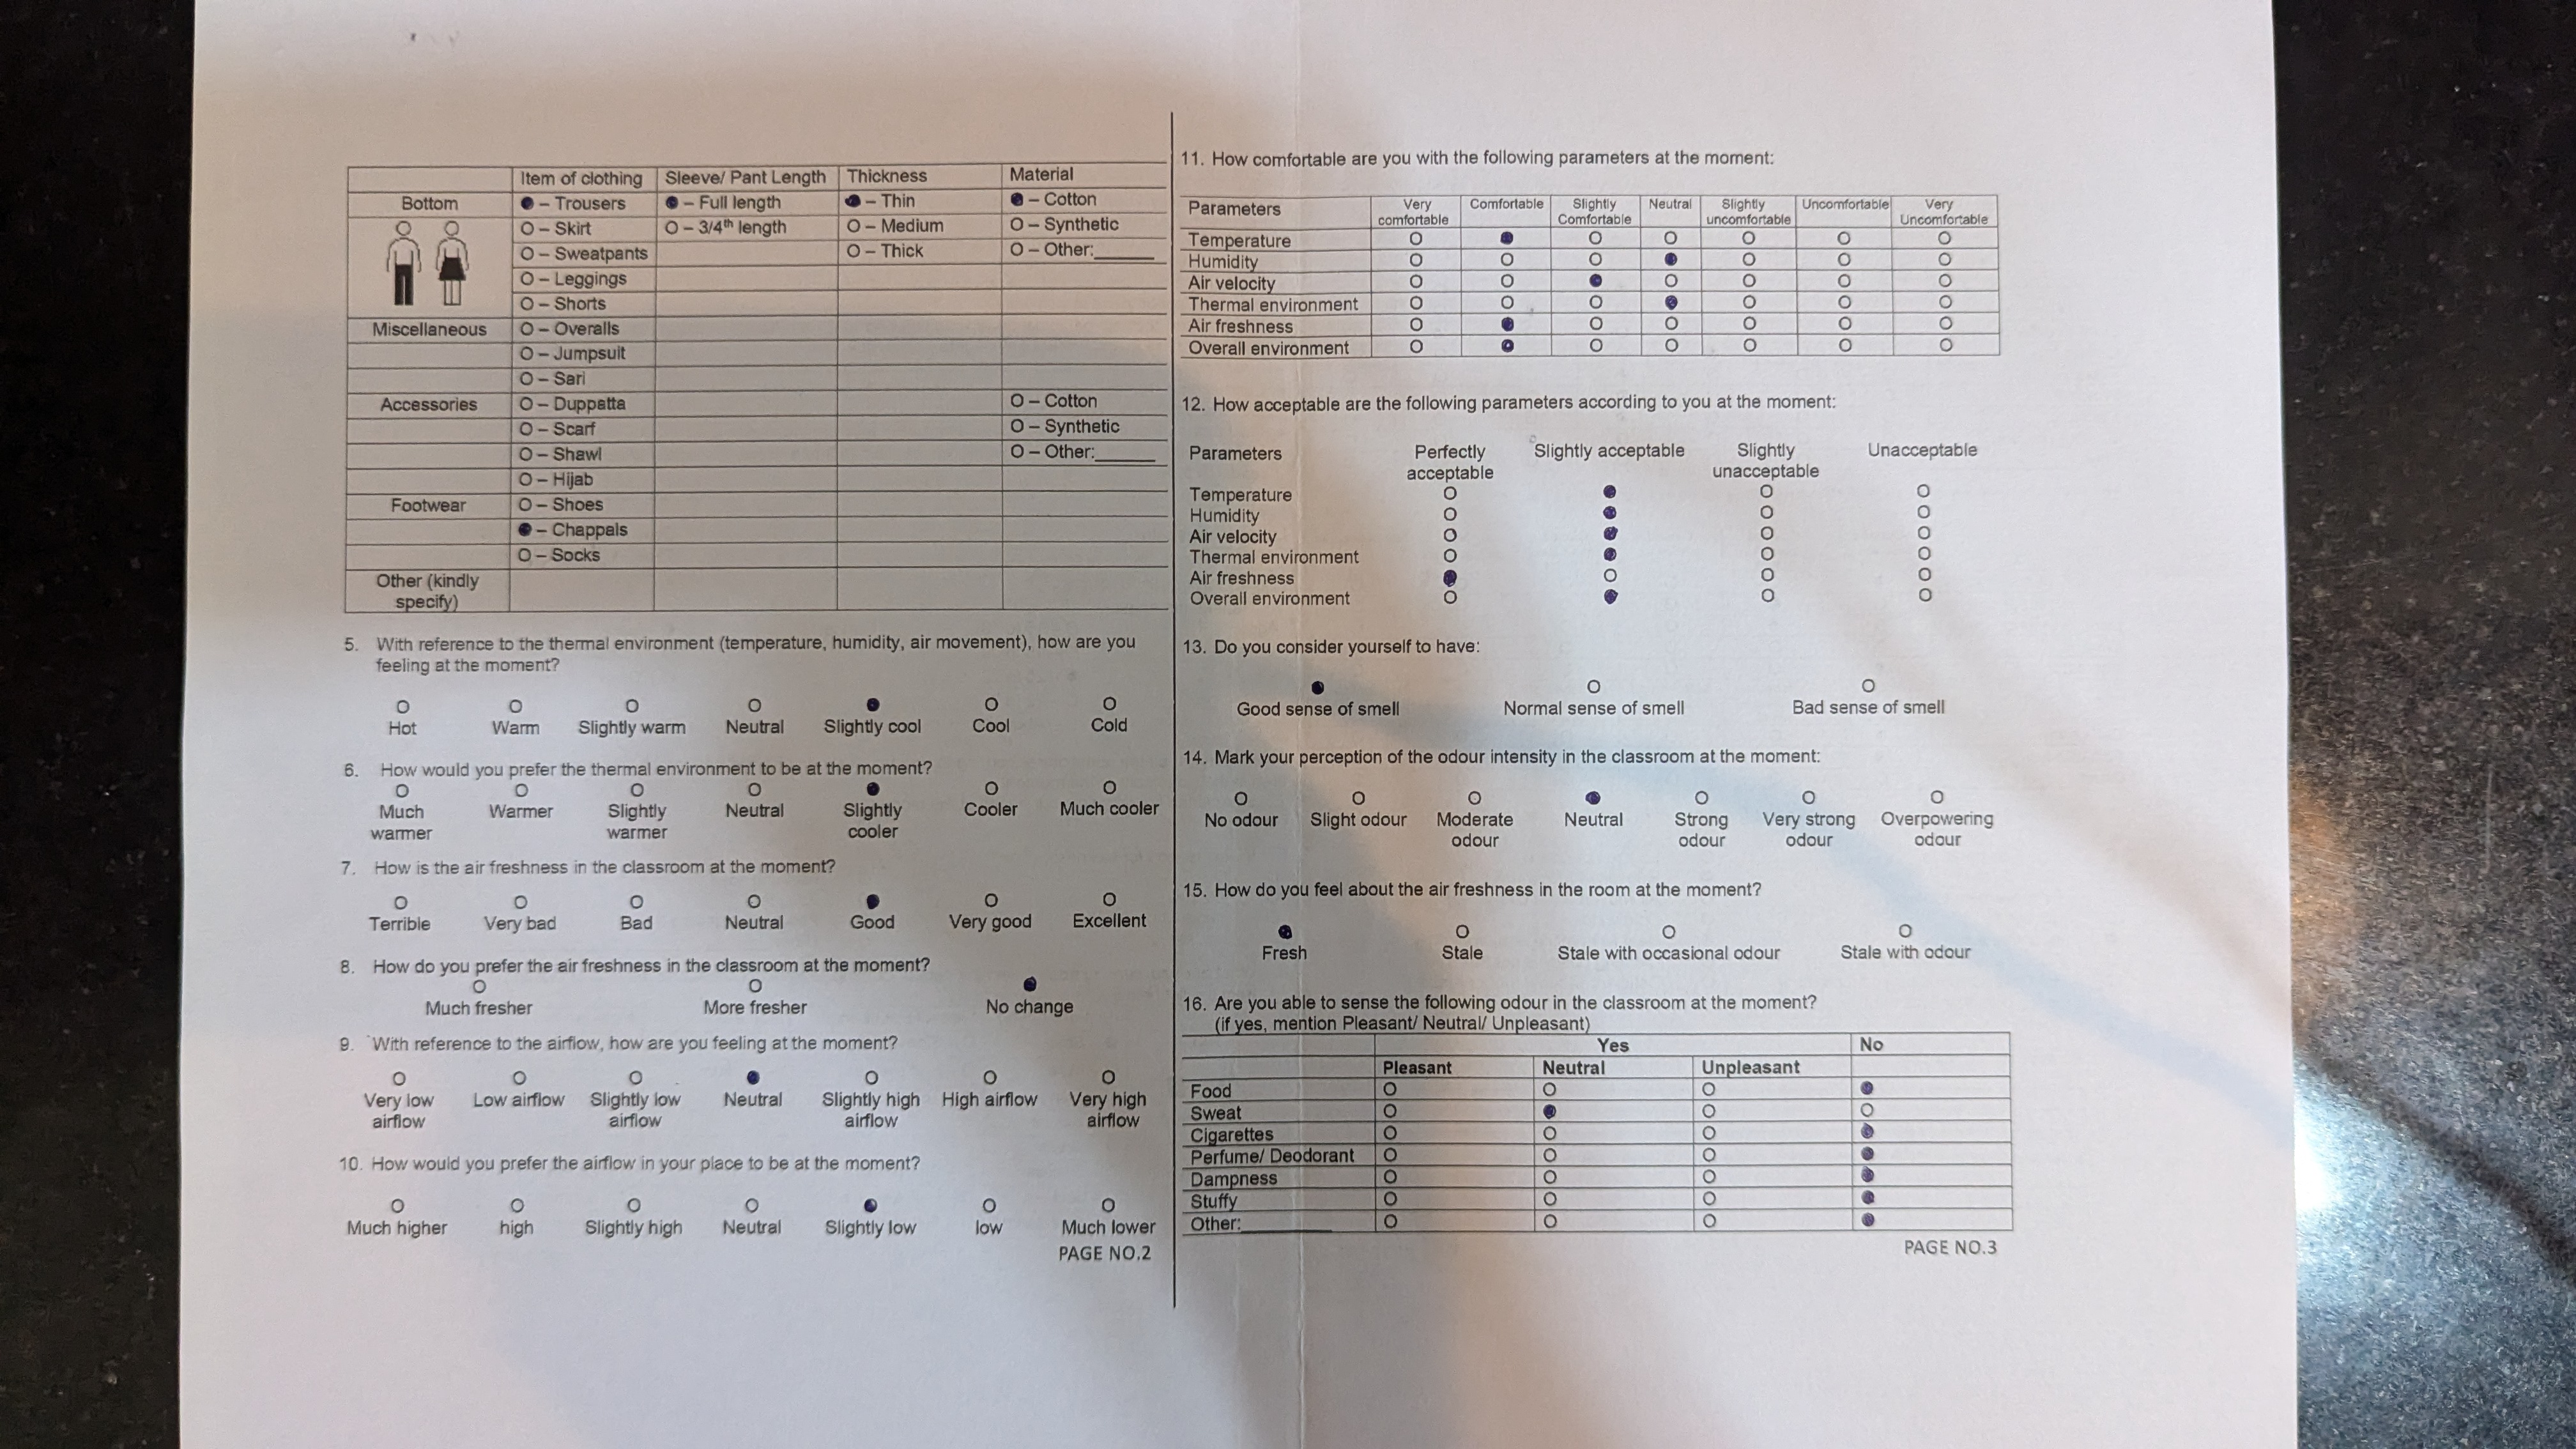 Item of clothing Sleeve/ Pant Length Thickness Material
Bottom ● – Trousers ● – Full length ● – Thin ● – Cotton
O – Skirt O – 3/4th length O – Medium O – Synthetic
O – Sweatpants O – Thick O – Other:______
O – Leggings
O – Shorts
Miscellaneous O – Overalls
O – Jumpsuit
O – Sari
Accessories O – Duppatta O – Cotton
O – Scarf O – Synthetic
O – Shawl O – Other:______
O – Hijab
Footwear O – Shoes
● – Chappals
O – Socks
Other (kindly
specify)
5. With reference to the thermal environment (temperature, humidity, air movement), how are you
feeling at the moment?
O O O O ● O O
Hot Warm Slightly warm Neutral Slightly cool Cool Cold
6. How would you prefer the thermal environment to be at the moment?
O O O O ● O O
Much Warmer Slightly Neutral Slightly Cooler Much cooler
warmer warmer cooler
7. How is the air freshness in the classroom at the moment?
O O O O ● O O
Terrible Very bad Bad Neutral Good Very good Excellent
8. How do you prefer the air freshness in the classroom at the moment?
O O ●
Much fresher More fresher No change
9. With reference to the airflow, how are you feeling at the moment?
O O O ● O O O
Very low Low airflow Slightly low Neutral Slightly high High airflow Very high
airflow airflow airflow airflow
10. How would you prefer the airflow in your place to be at the moment?
O O O O ● O O
Much higher high Slightly high Neutral Slightly low low Much lower
PAGE NO.2
11. How comfortable are you with the following parameters at the moment:
Parameters Very Comfortable Slightly Neutral Slightly Uncomfortable Very
comfortable Comfortable uncomfortable Uncomfortable
Temperature O ● O O O O O
Humidity O O O ● O O O
Air velocity O O ● O O O O
Thermal environment O O O ● O O O
Air freshness O ● O O O O O
Overall environment O ● O O O O O
12. How acceptable are the following parameters according to you at the moment:
Parameters Perfectly Slightly acceptable Slightly Unacceptable
acceptable unacceptable
Temperature O ● O O
Humidity O ● O O
Air velocity O ● O O
Thermal environment O ● O O
Air freshness ● O O O
Overall environment O ● O O
13. Do you consider yourself to have:
● O O
Good sense of smell Normal sense of smell Bad sense of smell
14. Mark your perception of the odour intensity in the classroom at the moment:
O O O ● O O O
No odour Slight odour Moderate Neutral Strong Very strong Overpowering
odour odour odour odour
15. How do you feel about the air freshness in the room at the moment?
● O O O
Fresh Stale Stale with occasional odour Stale with odour
16. Are you able to sense the following odour in the classroom at the moment?
(if yes, mention Pleasant/ Neutral/ Unpleasant)
Yes No
Pleasant Neutral Unpleasant
Food O O O ●
Sweat O ● O O
Cigarettes O O O ●
Perfume/ Deodorant O O O ●
Dampness O O O ●
Stuffy O O O ●
Other:__________ O O O ●
PAGE NO.3